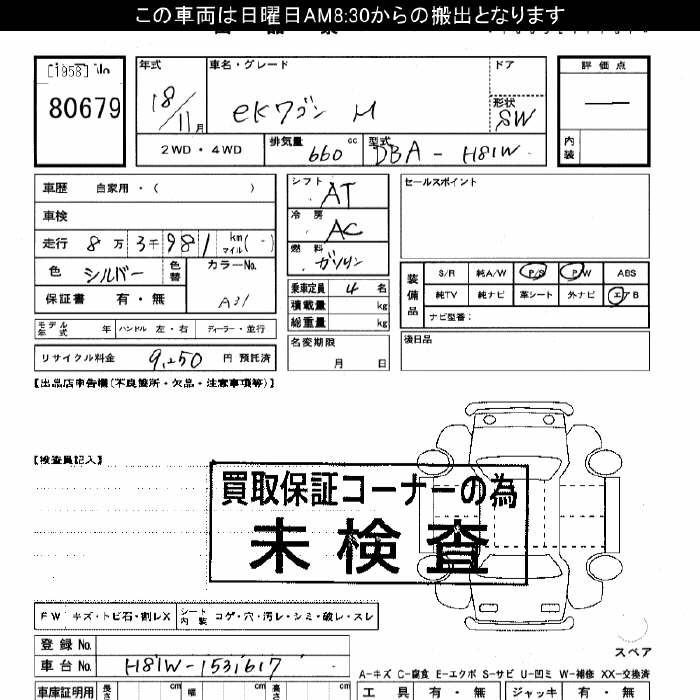 この車両は日曜日AM8:30からの搬出となります
[1958] No
80679
年式 車名・グレード ドア 評価点
18/11月 eKワゴン M 形状 SW
2WD・4WD 排気量 660 cc 型式 DBA-H81W 内装
車歴 自家用・( )
車検
走行 8万3千981 km マイル(-)
色 シルバー 色替 カラーNo.
保証書 有・無 A31
モデル年式 年 ハンドル 左・右 ディーラー・並行
リサイクル料金 9,250 円 預託済
シフト AT
冷房 AC
燃料 ガソリン
乗車定員 4 名
積載量 kg
総重量 kg
名変期限
月 日
セールスポイント
装備品 S/R 純A/W P/S P/W ABS
純TV 純ナビ 革シート 外ナビ エアB
ナビ型番:
後日品
【出品店申告欄(不良箇所・欠品・注意事項等)】
【検査員記入】
買取保証コーナーの為
未検査
FW キズ・トビ石・割レX シート内装 コゲ・穴・汚レ・シミ・破レ・スレ
登録No.
車台No. H81W-1531617
スペア
A-キズ C-腐食 E-エクボ S-サビ U-凹ミ W-補修 XX-交換済
車庫証明用 長さ cm 幅 cm 高さ cm
工具 有・無 ジャッキ 有・無